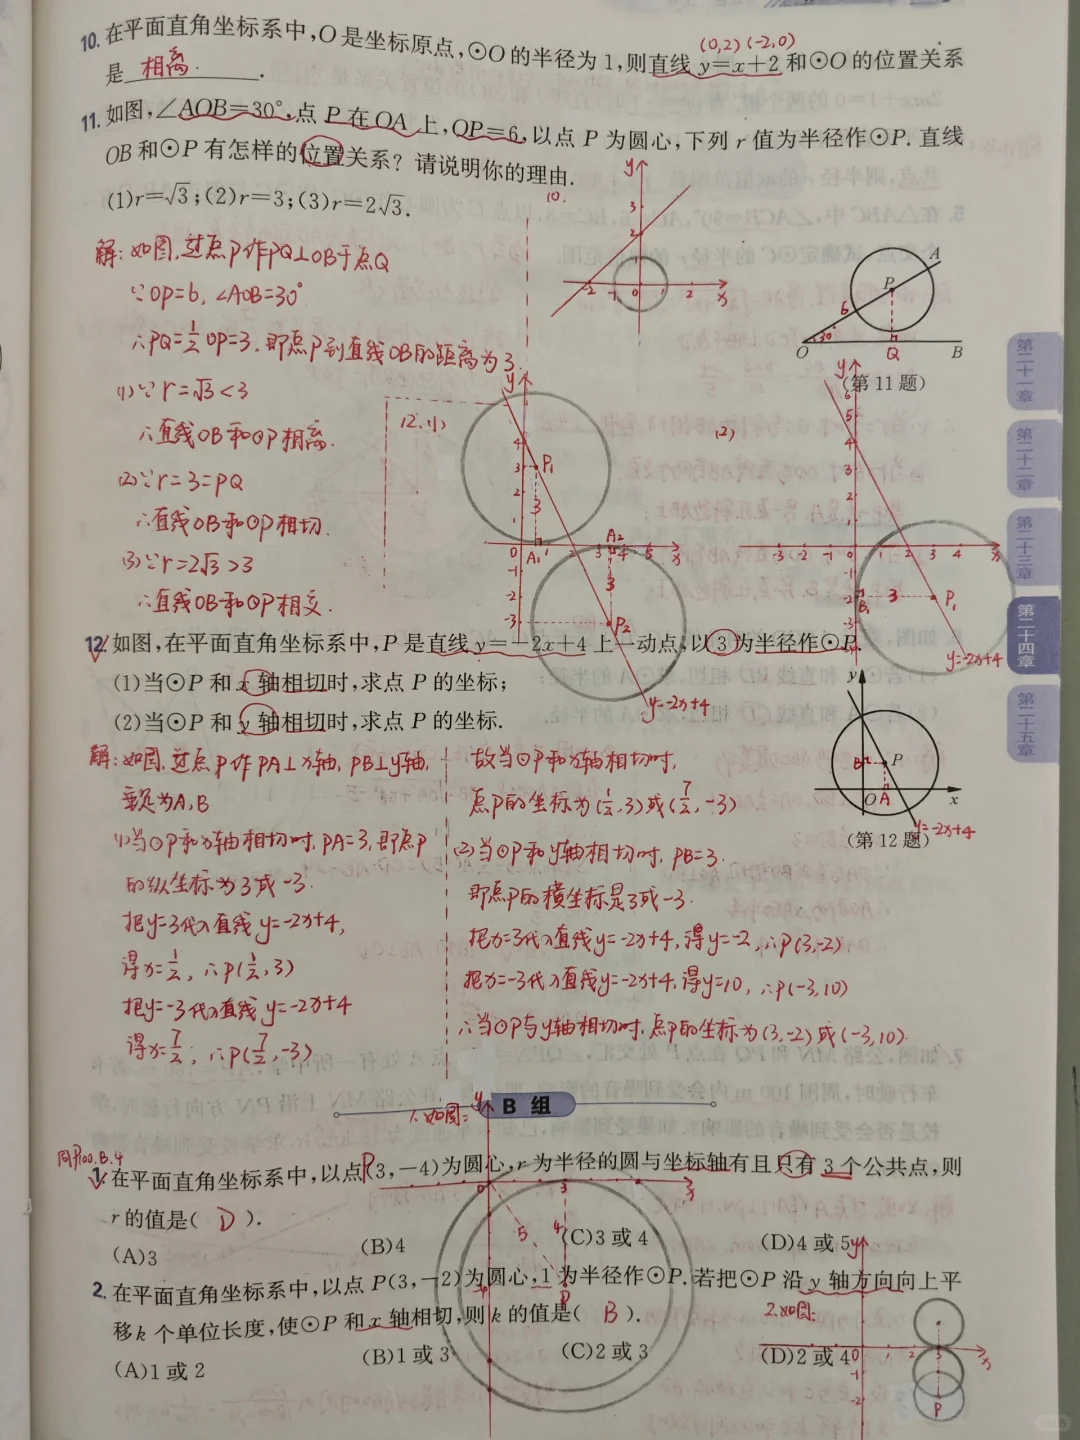 (0,2) (-2,0)
10. 在平面直角坐标系中,O是坐标原点,⊙O的半径为1,则直线 y=x+2 和⊙O的位置关系
是 相离 .
11. 如图,∠AOB=30°,点 P 在 OA 上,OP=6,以点 P 为圆心,下列 r 值为半径作⊙P. 直线
OB 和⊙P 有怎样的位置关系? 请说明你的理由.
(1)r=√3;(2)r=3;(3)r=2√3.
解:如图,过点P作PQ⊥OB于点Q
∵OP=6,∠AOB=30°
∴PQ=1/2 OP=3,即点P到直线OB的距离为3.
(1)∵r=√3<3
∴直线OB和⊙P相离.
(2)∵r=3=PQ
∴直线OB和⊙P相切.
(3)∵r=2√3>3
∴直线OB和⊙P相交.
10.
y
3
2
1
-2 -1 0 2 x
A
P
6
30°
O Q B
(第 11 题)
12.(1)
y
4
3
2
1
P₁
3
0 A₁ 1 2 3 A₂ 4 5 x
-1
-2
-3
3
P₂
y=-2x+4
(2)
y
6
5
4
3
2
1
-3 -2 -1 0 1 2 3 4 x
-1
-2
-3
B₁ 3 P₁
y=-2x+4
第二十一章
第二十二章
第二十三章
第二十四章
第二十五章
12. 如图,在平面直角坐标系中,P 是直线 y=-2x+4 上一动点,以 3 为半径作⊙P.
(1)当⊙P 和 x 轴相切时,求点 P 的坐标;
(2)当⊙P 和 y 轴相切时,求点 P 的坐标.
y
B P
O A x
y=-2x+4
(第 12 题)
解:如图,过点P作PA⊥x轴,PB⊥y轴,
垂足为A,B
(1)当⊙P和x轴相切时,PA=3,即点P
的纵坐标为3或-3.
把y=3代入直线y=-2x+4,
得x=1/2,∴P(1/2,3)
把y=-3代入直线y=-2x+4
得x=7/2,∴P(7/2,-3)
故当⊙P和x轴相切时,
点P的坐标为(1/2,3)或(7/2,-3)
(2)当⊙P和y轴相切时,PB=3.
即点P的横坐标是3或-3.
把x=3代入直线y=-2x+4,得y=-2,∴P(3,-2)
把x=-3代入直线y=-2x+4,得y=10,∴P(-3,10)
∴当⊙P与y轴相切时,点P的坐标为(3,-2)或(-3,10).
B 组
1.如图:
同P100.B.4
1. 在平面直角坐标系中,以点P(3,-4)为圆心,r 为半径的圆与坐标轴有且只有 3 个公共点,则
r 的值是( D ).
(A)3 (B)4 (C)3 或 4 (D)4 或 5
y
0 3 x
5 4
P
2. 在平面直角坐标系中,以点 P(3,-2)为圆心,1 为半径作⊙P. 若把⊙P 沿 y 轴方向向上平
移 k 个单位长度,使⊙P 和 x 轴相切,则 k 的值是( B ).
(A)1 或 2 (B)1 或 3 (C)2 或 3 (D)2 或 4
2.如图:
y
0 1 2 3 x
-1
-2
P